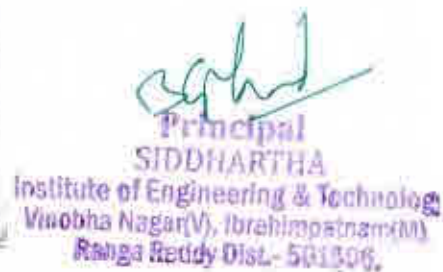 Principal
SIDDHARTHA
Institute of Engineering & Technolog
Vinobha Nagar(V), Ibrahimpatnam(M)
Ranga Reddy Dist.- 501506.